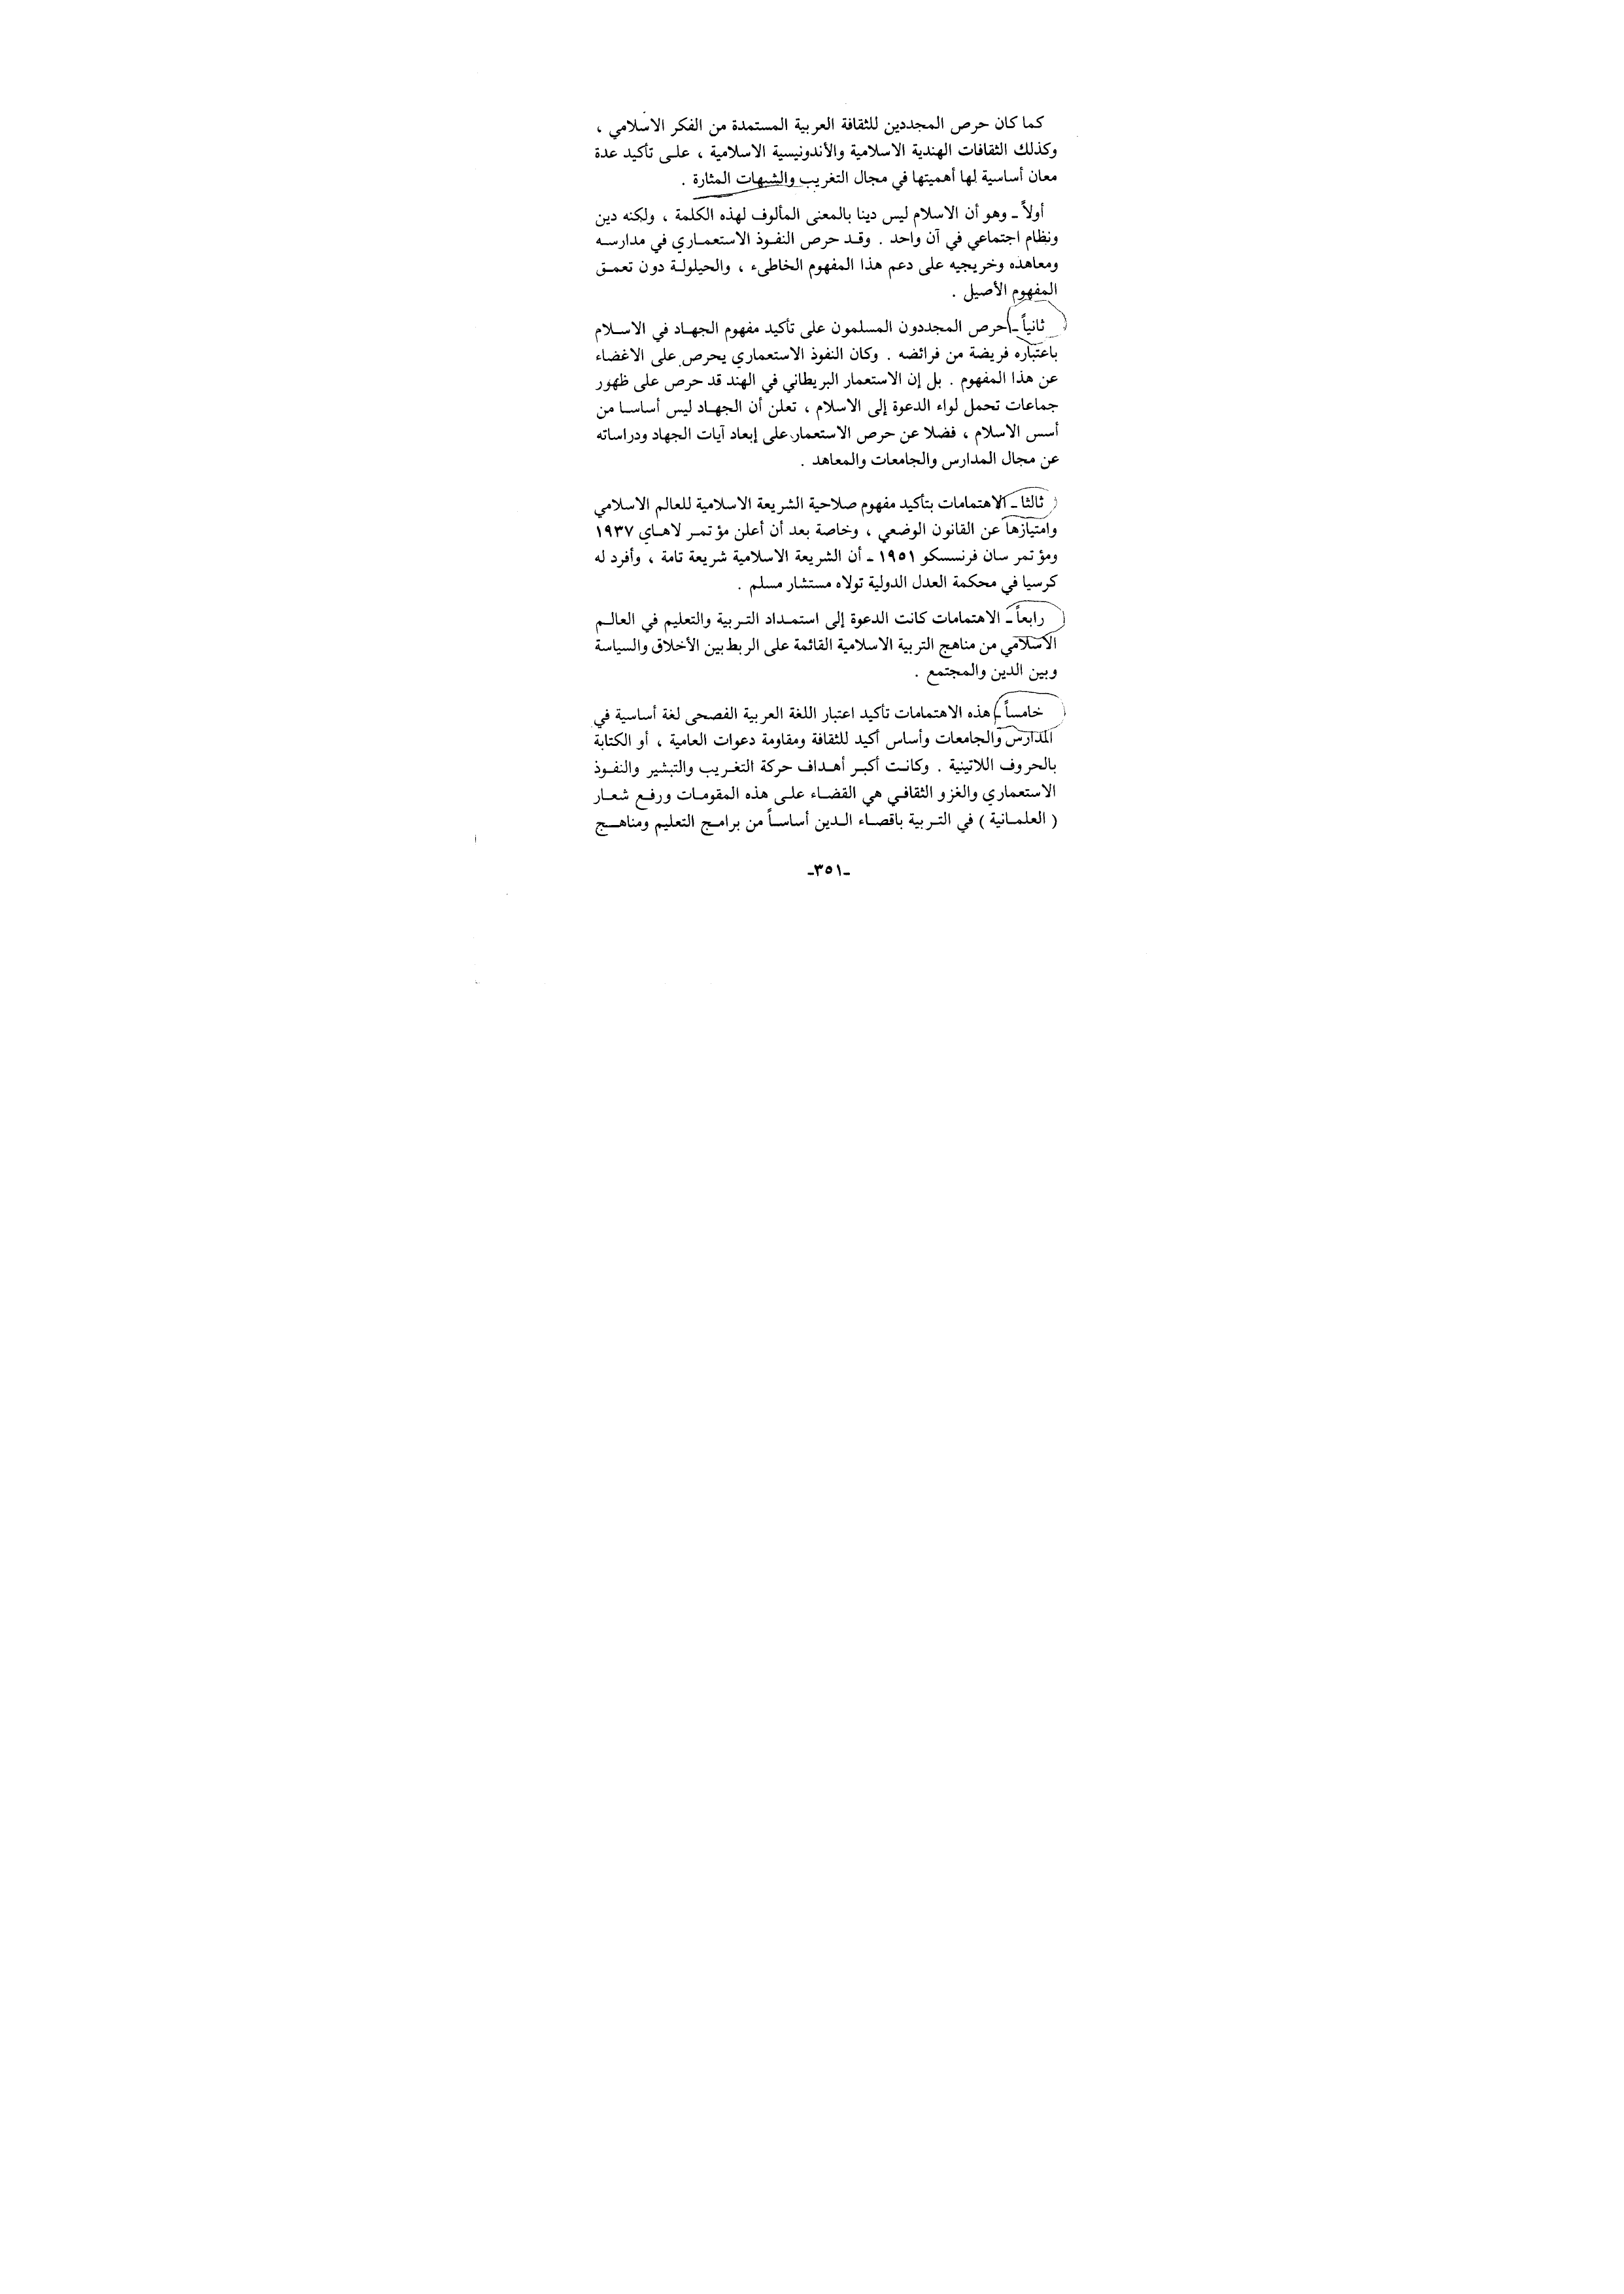 كما كان حرص المجددين للثقافة العربية المستمدة من الفكر الاسلامي ،
وكذلك الثقافات الهندية الاسلامية والأندونيسية الاسلامية ، على تأكيد عدة
معان أساسية لها أهميتها في مجال التغريب والشبهات المثارة .
أولاً ـ وهو أن الاسلام ليس دينا بالمعنى المألوف لهذه الكلمة ، ولكنه دين
ونظام اجتماعي في آن واحد . وقد حرص النفوذ الاستعماري في مدارسه
ومعاهده وخريجيه على دعم هذا المفهوم الخاطىء ، والحيلولة دون تعمق
المفهوم الأصيل .
ثانياً ـ حرص المجددون المسلمون على تأكيد مفهوم الجهاد في الاسلام
باعتباره فريضة من فرائضه . وكان النفوذ الاستعماري يحرص على الاغضاء
عن هذا المفهوم . بل إن الاستعمار البريطاني في الهند قد حرص على ظهور
جماعات تحمل لواء الدعوة إلى الاسلام ، تعلن أن الجهاد ليس أساسا من
أسس الاسلام ، فضلا عن حرص الاستعمار على إبعاد آيات الجهاد ودراساته
عن مجال المدارس والجامعات والمعاهد .
ثالثا ـ الاهتمامات بتأكيد مفهوم صلاحية الشريعة الاسلامية للعالم الاسلامي
وامتيازها عن القانون الوضعي ، وخاصة بعد أن أعلن مؤتمر لاهاي ١٩٣٧
ومؤتمر سان فرنسسكو ١٩٥١ ـ أن الشريعة الاسلامية شريعة تامة ، وأفرد له
كرسيا في محكمة العدل الدولية تولاه مستشار مسلم .
رابعاً ـ الاهتمامات كانت الدعوة إلى استمداد التربية والتعليم في العالم
الاسلامي من مناهج التربية الاسلامية القائمة على الربط بين الأخلاق والسياسة
وبين الدين والمجتمع .
خامساً ـ هذه الاهتمامات تأكيد اعتبار اللغة العربية الفصحى لغة أساسية في
المدارس والجامعات وأساس أكيد للثقافة ومقاومة دعوات العامية ، أو الكتابة
بالحروف اللاتينية . وكانت أكبر أهداف حركة التغريب والتبشير والنفوذ
الاستعماري والغزو الثقافي هي القضاء على هذه المقومات ورفع شعار
( العلمانية ) في التربية باقصاء الدين أساساً من برامج التعليم ومناهج
ـ٣٥١ـ